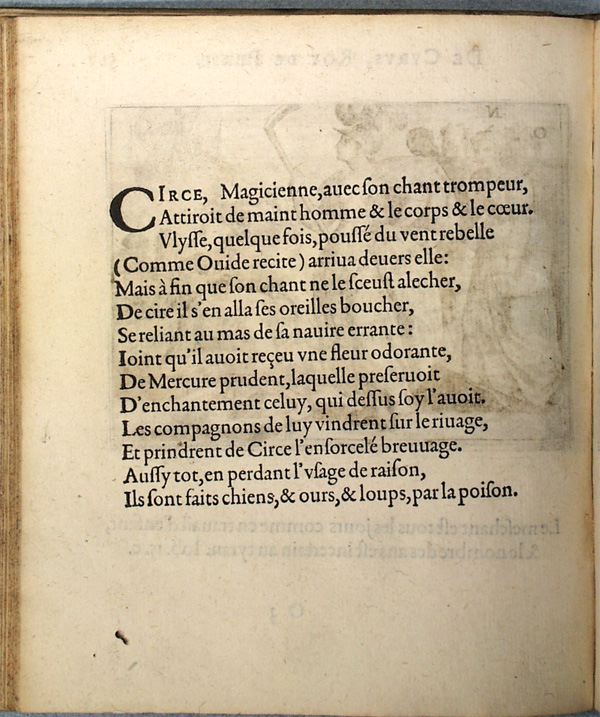 CIRCE, Magicienne,auec ſon chant trompeur,
Attiroit de maint homme & le corps & le cœur.
Vlyſſe,quelque fois,pouſſé du vent rebelle
(Comme Ouide recite) arriua deuers elle:
Mais à fin que ſon chant ne le ſceuſt alecher,
De cire il s'en alla ſes oreilles boucher,
Se reliant au mas de ſa nauire errante:
Ioint qu'il auoit reçeu vne fleur odorante,
De Mercure prudent,laquelle preſeruoit
D'enchantement celuy, qui deſſus ſoy l'auoit.
Les compagnons de luy vindrent ſur le riuage,
Et prindrent de Circe l'enſorcelé breuuage.
Auſſy tot,en perdant l'vſage de raiſon,
Ils ſont faits chiens,& ours,& loups,par la poiſon.